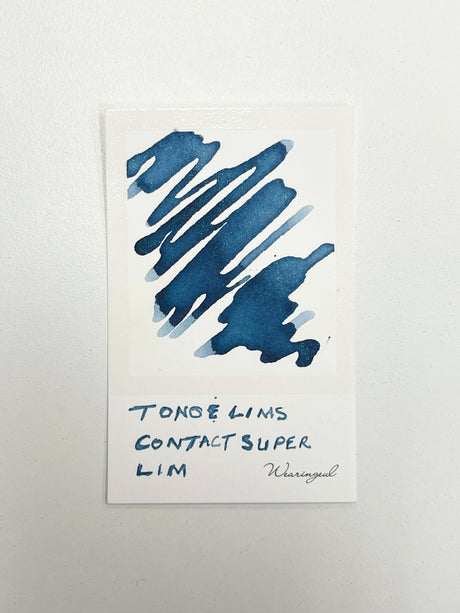 TONO & LIMS
CONTACT SUPER
LIM
Wearingeul